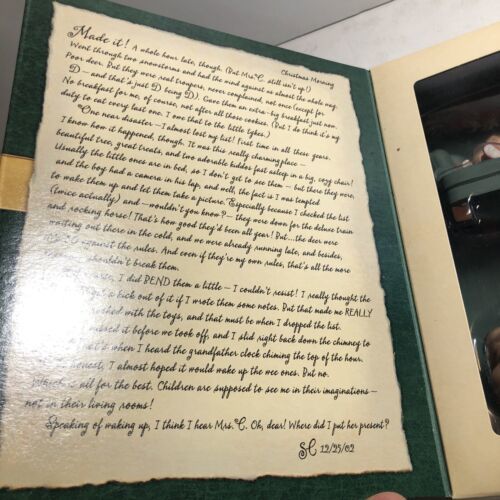 Christmas Morning
Made it! A whole hour late, though. (But Mrs. C. still isn't up!)
Went through two snowstorms and had the wind against us almost the whole way.
Poor deer. But they were real troupers, never complained, not once (except for
D — and that's just D being D). Gave them an extra-big breakfast just now.
No breakfast for me, of course, not after all those cookies. (But I do think it's my
duty to eat every last one. I owe that to the little tykes.)
"One near disaster — I almost lost my list! First time in all these years.
I know how it happened, though. It was this really charming place —
beautiful tree, great treats, and two adorable kiddos fast asleep in a big, cozy chair!
Usually the little ones are in bed, so I don't get to see them — but there they were,
and the boy had a camera in his lap, and well, the fact is I was tempted
to wake them up and let them take a picture. Especially because I checked the list
(twice actually) and — wouldn't you know? — they were down for the deluxe train
and rocking horse! That's how good they'd been all year! But... the deer were
waiting out there in the cold, and we were already running late, and besides,
against the rules. And even if they're my own rules, that's all the more
shouldn't break them.
I did BEND them a little — I couldn't resist! I really thought the
get a kick out of it if I wrote them some notes. But that made me REALLY
with the toys, and that must be when I dropped the list.
missed it before we took off, and I slid right back down the chimney to
that's when I heard the grandfather clock chiming the top of the hour.
honest, I almost hoped it would wake up the wee ones. But no.
Which is all for the best. Children are supposed to see me in their imaginations —
not in their living rooms!
Speaking of waking up, I think I hear Mrs. C. Oh, dear! Where did I put her present?
SC 12/25/02